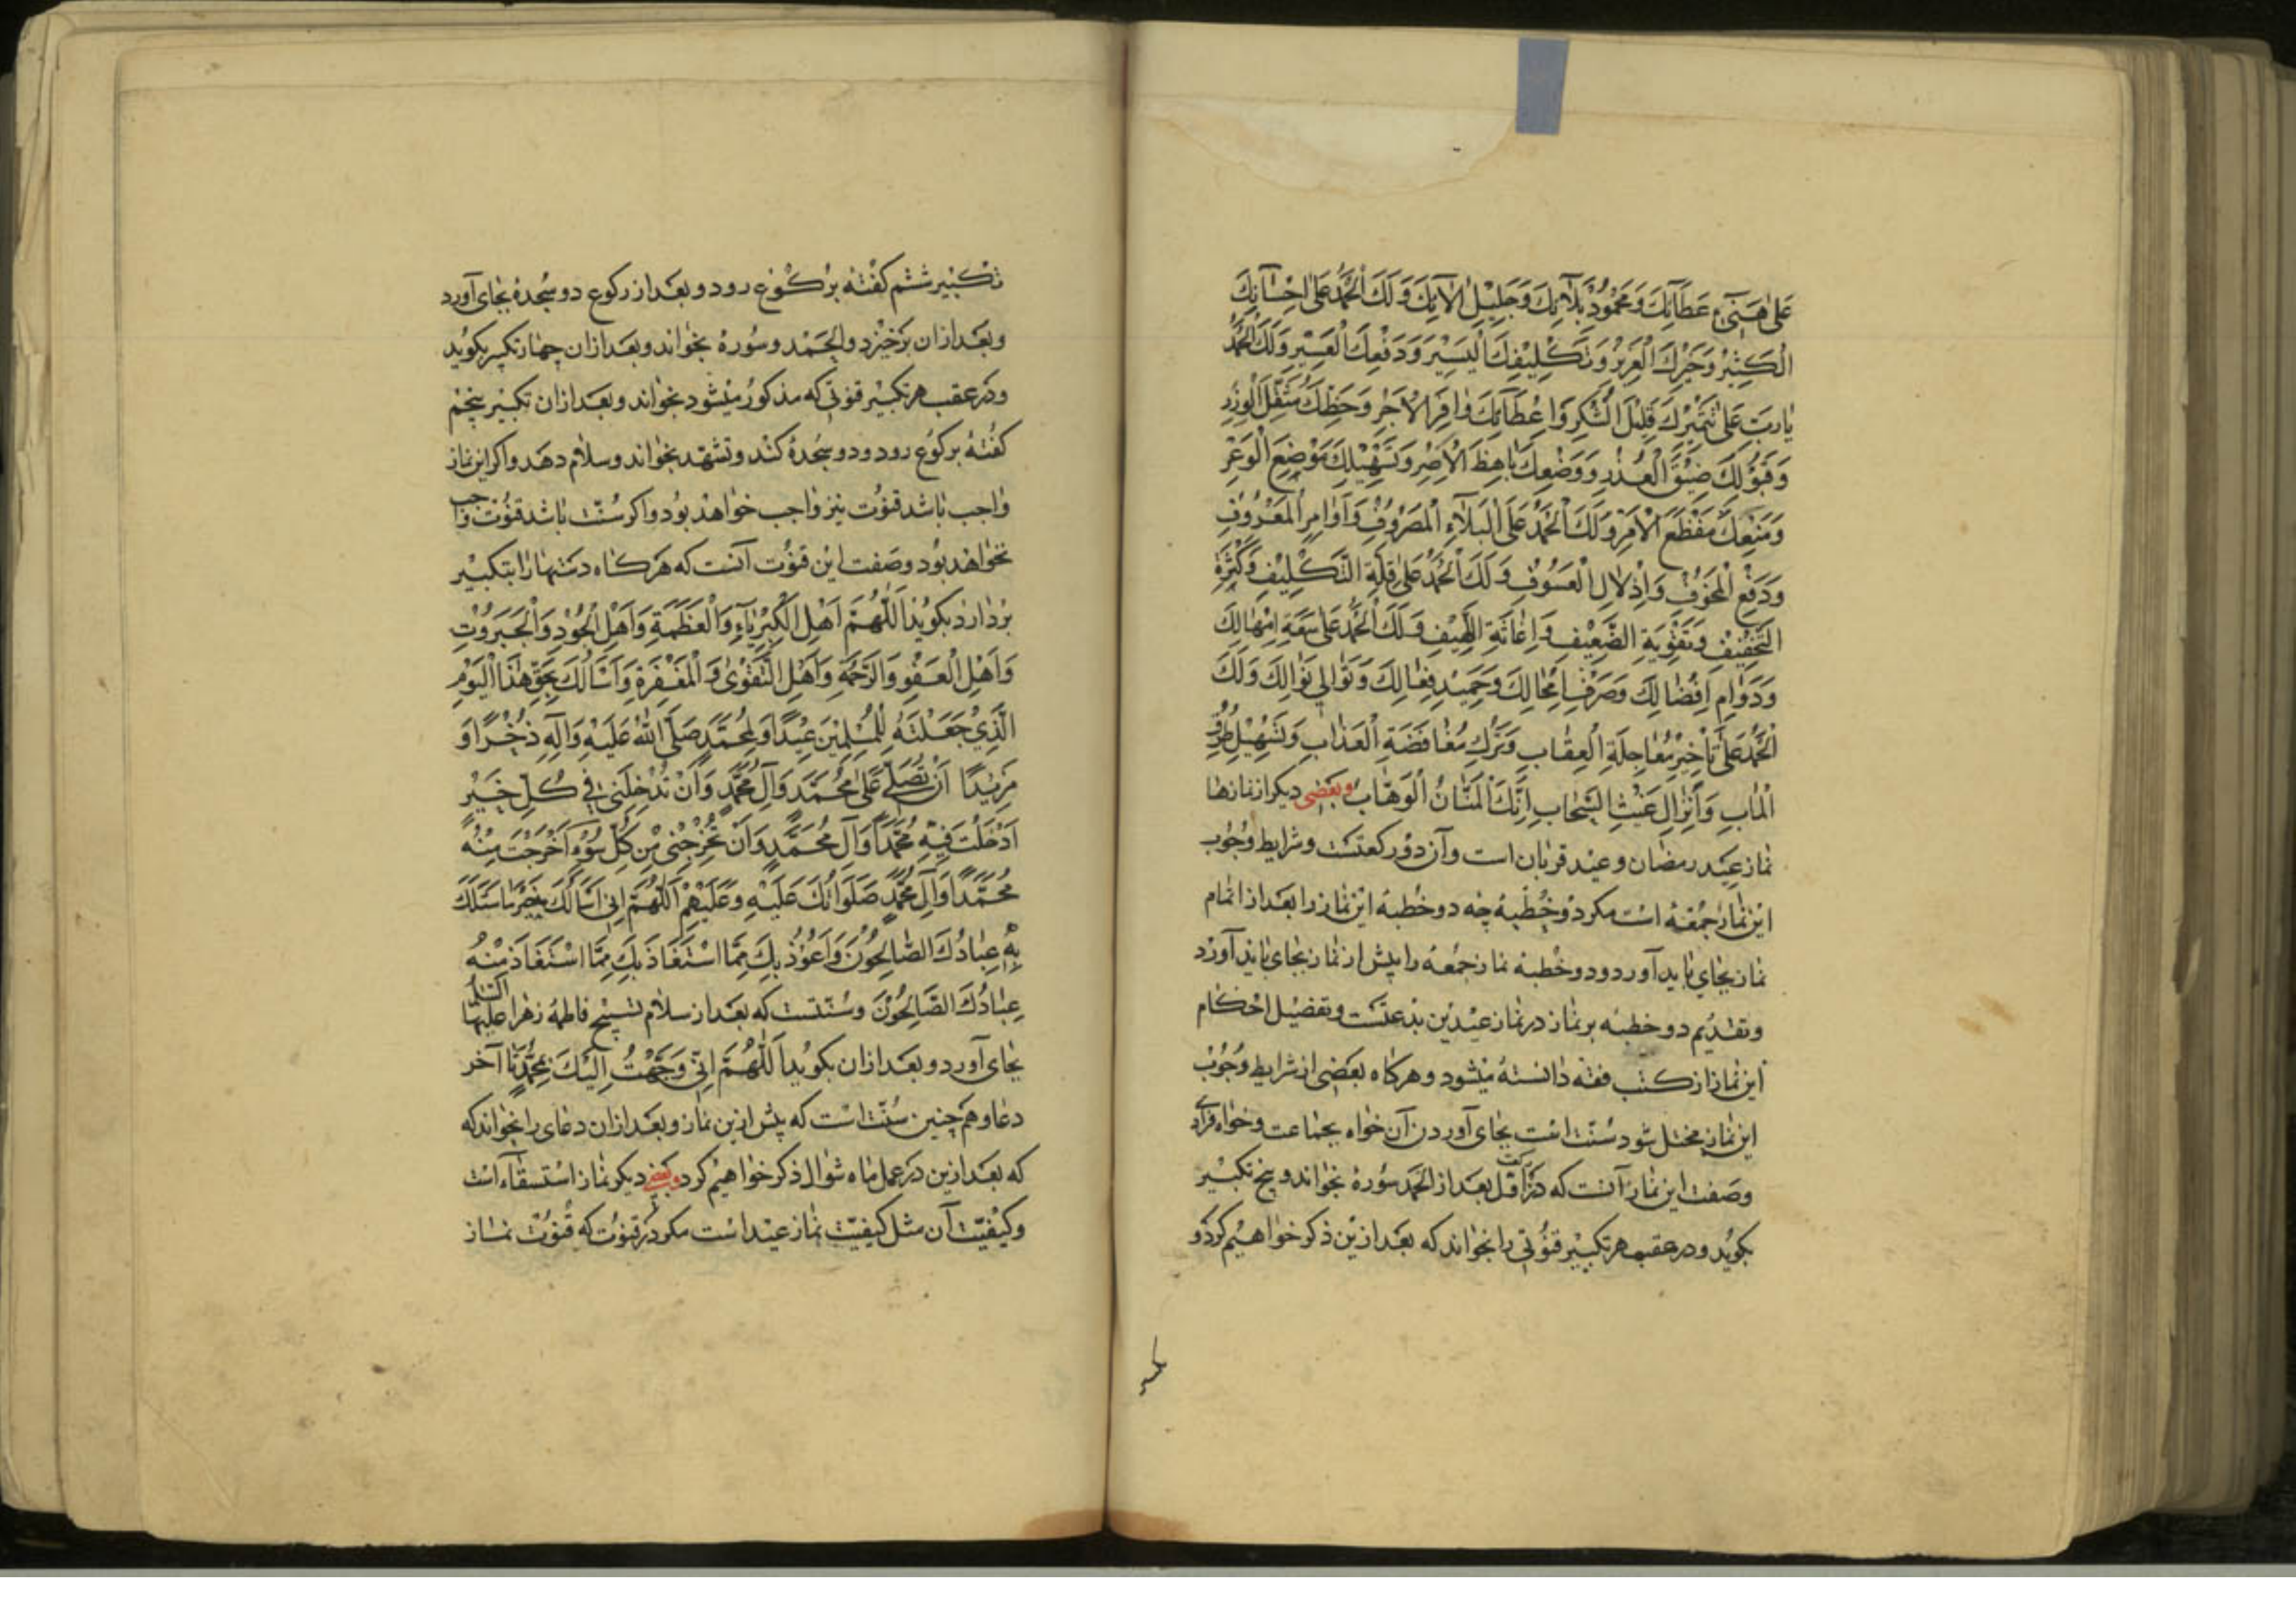 عَلىٰ هَنِيۤءِ عَطَآئِكَ وَمَحْمُودِ بَلَآئِكَ وَجَلِيْلِ اٰلآئِكَ وَلَكَ الْحَمْدُ عَلىٰ اِحْسَانِكَ
الْكَثِيْرِ وَخَيْرِكَ الْعَزِيْزِ وَتَكْلِيْفِكَ الْيَسِيْرَ وَدَفْعِكَ الْعَسِيْرِ وَلَكَ الْحَمْدُ
يٰارَبِّ عَلىٰ تَثْمِيْرِكَ قَلِيْلَ الشُّكْرِ وَاِعْطَآئِكَ وٰافِرَ الْاَجْرِ وَحَطِّكَ مُثْقَلَ الْوِزْرِ
وَقَبُوْلِكَ ضِيْقَ الْعُذْرِ وَوَضْعِكَ بٰاهِظَ الْاِصْرِ وَتَسْهِيْلِكَ مَوْضِعَ الْوَعْرِ
وَمَنْعِكَ مُفْظِعَ الْاَمْرِ وَلَكَ الْحَمْدُ عَلَى الْبَلَآءِ الْمَصْرُوْفِ وَاَوٰامِرِ الْمَعْرُوْفِ
وَدَفْعِ الْمَخُوْفِ وَاِذْلٰالِ الْعَسُوْفِ وَلَكَ الْحَمْدُ عَلىٰ قِلَّةِ التَّكْلِيْفِ وَكَثْرَةِ
التَّخْفِيْفِ وَتَقْوِيَةِ الضَّعِيْفِ وَاِغٰاثَةِ اللَّهِيْفِ وَلَكَ الْحَمْدُ عَلىٰ سَعَةِ اِمْهٰالِكَ
وَدَوٰامِ اِفْضٰالِكَ وَصَرْفِ اِمْحٰالِكَ وَحَمِيْدِ فِعٰالِكَ وَتَوٰالِي نَوٰالِكَ وَلَكَ
الْحَمْدُ عَلىٰ تَأْخِيْرِ مُعٰاجِلَةِ الْعِقٰابِ وَتَرْكِ مُغٰافَضَةِ الْعَذٰابِ وَتَسْهِيْلِ طُرُقِ
الْمٰابِ وَاَنْزٰالِ غَيْثِ السَّحٰابِ اِنَّكَ الْمَنّٰانُ الْوَهّٰاب وبعضى ديكر از نمازها
نماز عيد رمضان وعيد قربان است وآن دو ركعتست وشرايط وجوب
اين نماز جمعه است مكر دو خطبه چه دو خطبهٔ اين نماز را بعد از اتمام
نماز بجاي بايد آورد ودو خطبهٔ نماز جمعه را پيش از نماز بجاى بايد آورد
وتقديم دو خطبه بر نماز در نماز عيدين بدعتست وتفضيل احكام
اين نماز از كتب فقه دانسته ميشود وهركاه بعضى از شرايط وجوب
اين نماز مختل شود سنّت است بجاى آوردن آن خواه بجماعت وخواه فرادى
وصفت اين نماز آنست كه در ركعت اوّل بعد از الحمد سوره بخواند وپنج تكبير
بكويد ودر عقب هر تكبير قنوتى را بخواند كه بعد ازين ذكر خواهيم كرد و
تكبير ششم كفته بركوع رود وبعد از ركوع دو سجده بجاى آورد
وبعد از ان برخيزد والحمد وسوره بخواند وبعد از ان چهار تكبير بكويد
ودر عقب هر تكبير قنوتى كه مذكور ميشود بخواند وبعد از ان تكبير پنجم
كفته بركوع رود ودو سجده كند وتشهّد بخواند وسلام دهد واكر اين نماز
واجب باشد قنوت نيز واجب خواهد بود واكر سنّت باشد قنوت واجب
نخواهد بود وصفت اين قنوت آنست كه هركاه دستها را بتكبير
بردارد بكويد اَللّٰهُمَّ اَهْلَ الْكِبْرِيٰآءِ وَالْعَظَمَةِ وَاَهْلَ الْجُوْدِ وَالْجَبَرُوْتِ
وَاَهْلَ الْعَفْوِ وَالرَّحْمَةِ وَاَهْلَ التَّقْوٰى وَالْمَغْفِرَةِ وَاَسْاَلُكَ بِحَقِّ هٰذَا الْيَوْمِ
الَّذِيْ جَعَلْتَهُ لِلْمُسْلِمِيْنَ عِيْدًا وَلِمُحَمَّدٍ صَلَّى اللّٰهُ عَلَيْهِ وَاٰلِهِ ذُخْرًا وَ
مَزِيْدًا اَنْ تُصَلِّيَ عَلىٰ مُحَمَّدٍ وَآلِ مُحَمَّدٍ وَاَنْ تُدْخِلَنِى فِي كُلِّ خَيْرٍ
اَدْخَلْتَ فِيْهِ مُحَمَّدًا وَآلَ مُحَمَّدٍ وَاَنْ تُخْرِجَنِى مِنْ كُلِّ سُوْءٍ اَخْرَجْتَ مِنْهُ
مُحَمَّدًا وَآلَ مُحَمَّدٍ صَلَوٰاتُكَ عَلَيْهِ وَعَلَيْهِمْ اَللّٰهُمَّ اِنِّى اَسْاَلُكَ خَيْرَ مٰا سَئَلَكَ
بِهِ عِبٰادُكَ الصّٰالِحُوْنَ وَاَعُوْذُ بِكَ مِمَّا اسْتَعَاذَ بِكَ مِمَّا اسْتَعَاذَ مِنْهُ
عِبٰادُكَ الصّٰالِحُوْنَ وسنّتست كه بعد از سلام تسبيح فاطمهٔ زهرا عليها السّلام
بجاى آورد وبعد از ان بكويد اَللّٰهُمَّ اِنِّى وَجَّهْتُ اِلَيْكَ بِمُحَمَّدٍ تا آخر
دعا وهم چنين سنّت است كه پيش ازين نماز وبعد از ان دعاى را بخواند كه
كه بعد ازين در عمل ماه شوال ذكر خواهيم كرد وبعضى ديكر نماز استسقاء است
وكيفيّت آن مثل كيفيّت نماز عيد است مكر در قنوت كه قنوت نماز